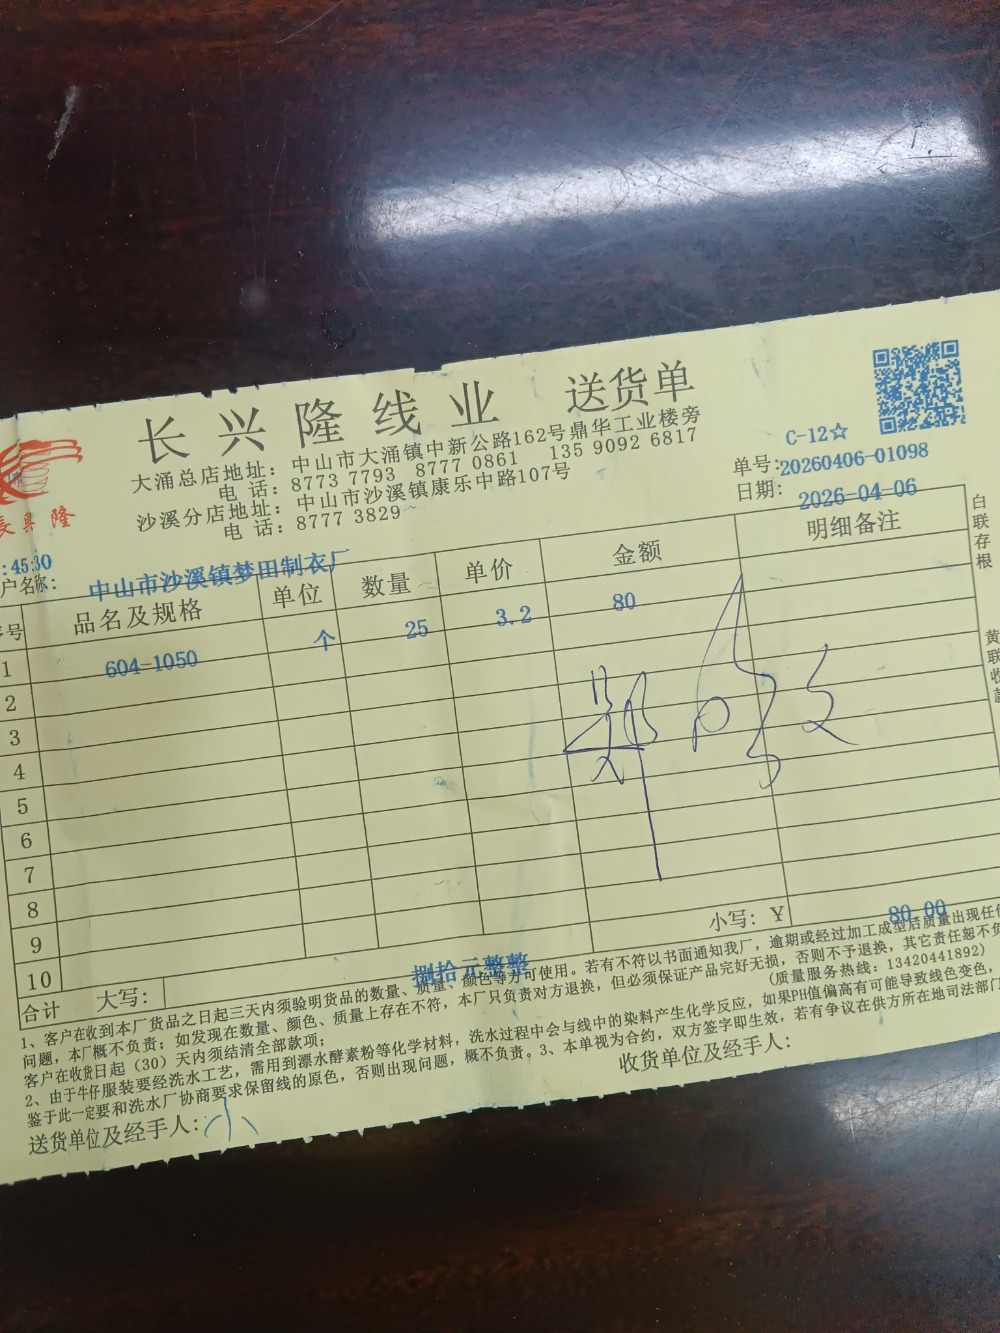 长兴隆线业 送货单
大涌总店地址：中山市大涌镇中新公路162号鼎华工业楼旁
电 话：8773 7793 8777 0861 135 9092 6817
沙溪分店地址：中山市沙溪镇康乐中路107号
电 话：8777 3829
長興隆
C-12☆
单号:20260406-01098
日期: 2026-04-06
:45:30
户名称: 中山市沙溪镇梦田制衣厂
号 品名及规格 单位 数量 单价 金额 明细备注
1 604-1050 个 25 3.2 80
2
3
4
5
6
7
8
9
10
小写：￥ 80.00
合计 大写： 捌拾元整整
1、客户在收到本厂货品之日起三天内须验明货品的数量、质量、颜色等方可使用。若有不符以书面通知我厂，逾期或经过加工成型后质量出现任何
问题，本厂概不负责；如发现在数量、颜色、质量上存在不符，本厂只负责对方退换，但必须保证产品完好无损，否则不予退换，其它责任恕不负
客户在收货日起（30）天内须结清全部款项； （质量服务热线：13420441892）
2、由于牛仔服装要经洗水工艺，需用到漂水酵素粉等化学材料，洗水过程中会与线中的染料产生化学反应，如果PH值偏高有可能导致线色变色，
鉴于此一定要和洗水厂协商要求保留线的原色，否则出现问题，概不负责。3、本单视为合约，双方签字即生效，若有争议在供方所在地司法部门
送货单位及经手人： 收货单位及经手人：
白联存根
黄联收